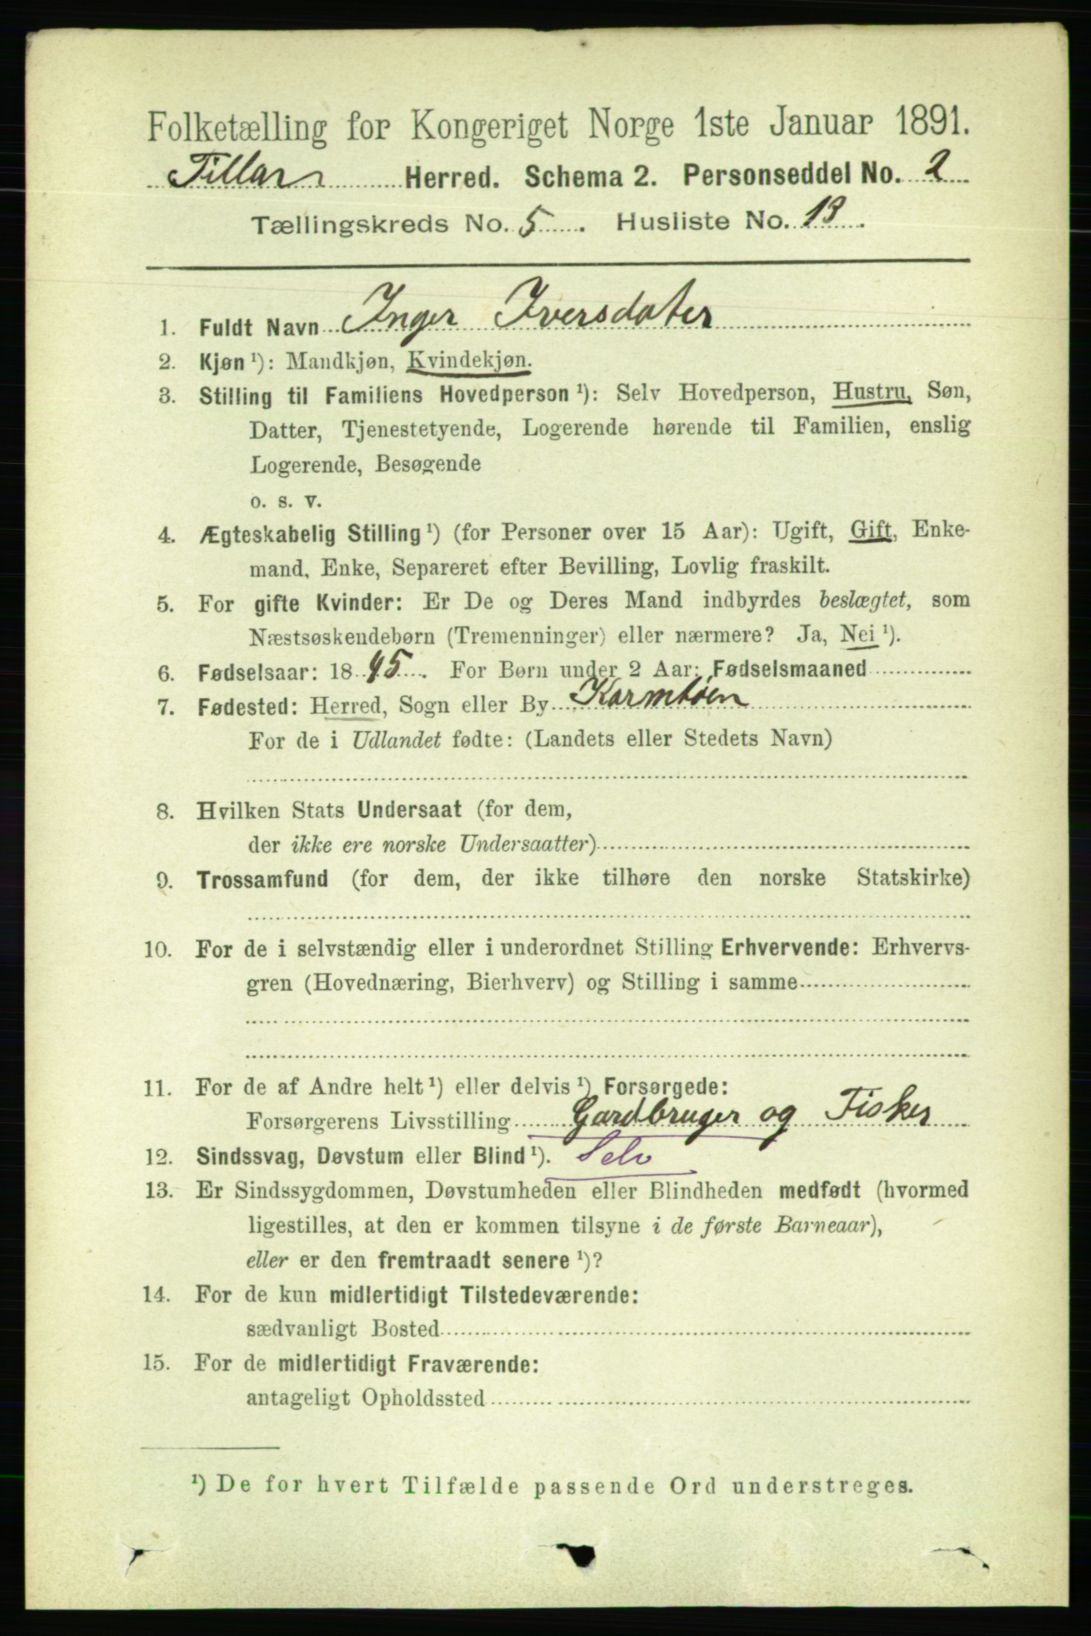 Folketælling for Kongeriget Norge 1ste Januar 1891.
Tillar Herred. Schema 2. Personseddel No. 2
Tællingskreds No. 5. Husliste No. 13.
1. Fuldt Navn Inger Iversdater
2. Kjøn ¹): Mandkjøn, Kvindekjøn.
3. Stilling til Familiens Hovedperson ¹): Selv Hovedperson, Hustru, Søn,
Datter, Tjenestetyende, Logerende hørende til Familien, enslig
Logerende, Besøgende
o. s. v.
4. Ægteskabelig Stilling ¹) (for Personer over 15 Aar): Ugift, Gift, Enke-
mand, Enke, Separeret efter Bevilling, Lovlig fraskilt.
5. For gifte Kvinder: Er De og Deres Mand indbyrdes beslægtet, som
Næstsøskendebørn (Tremenninger) eller nærmere? Ja, Nei ¹).
6. Fødselsaar: 1845. For Børn under 2 Aar: Fødselsmaaned
7. Fødested: Herred, Sogn eller By Karmtøen
For de i Udlandet fødte: (Landets eller Stedets Navn)
8. Hvilken Stats Undersaat (for dem,
der ikke ere norske Undersaatter)
9. Trossamfund (for dem, der ikke tilhøre den norske Statskirke)
10. For de i selvstændig eller i underordnet Stilling Erhvervende: Erhvervs-
gren (Hovednæring, Bierhverv) og Stilling i samme
11. For de af Andre helt ¹) eller delvis ¹) Forsørgede:
Forsørgerens Livsstilling Gardbruger og Fisker
12. Sindssvag, Døvstum eller Blind ¹). Selv
13. Er Sindssygdommen, Døvstumheden eller Blindheden medfødt (hvormed
ligestilles, at den er kommen tilsyne i de første Barneaar),
eller er den fremtraadt senere ¹)?
14. For de kun midlertidigt Tilstedeværende:
sædvanligt Bosted
15. For de midlertidigt Fraværende:
antageligt Opholdssted
¹) De for hvert Tilfælde passende Ord understreges.